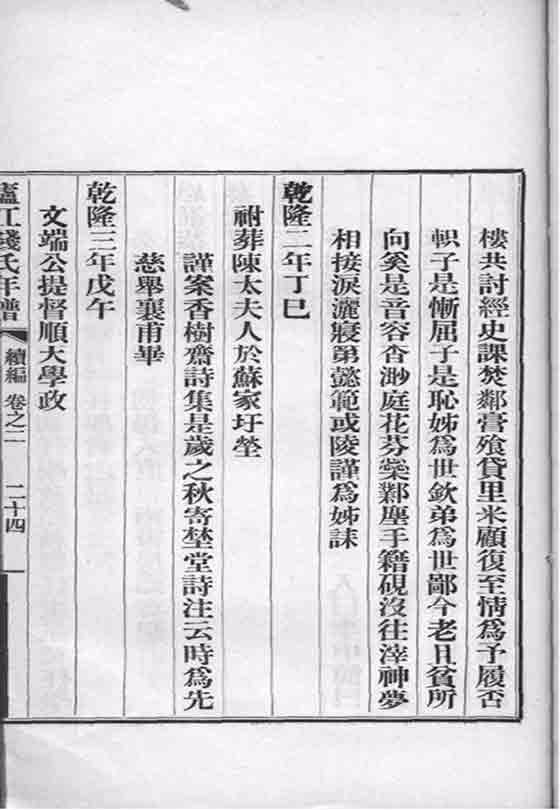 樓共討經史課焚鄰膏飧貸里米顧復至情為予履否
軹子是慚屈子是恥姊為世欽弟為世鄙今老且貧所
向奚是音容杳渺庭花芬榮鄴壓手籍硯沒往滓神夢
相接淚灑寢第懿範或陵謹為姊誄
乾隆二年丁巳
祔葬陳太夫人於蘇家圩塋
謹案香樹齋詩集是歲之秋寄埜堂詩注云時為先
慈舉襄甫畢
乾隆三年戊午
文端公提督順天學政
廬江錢氏年譜 續編 卷之二 二十四